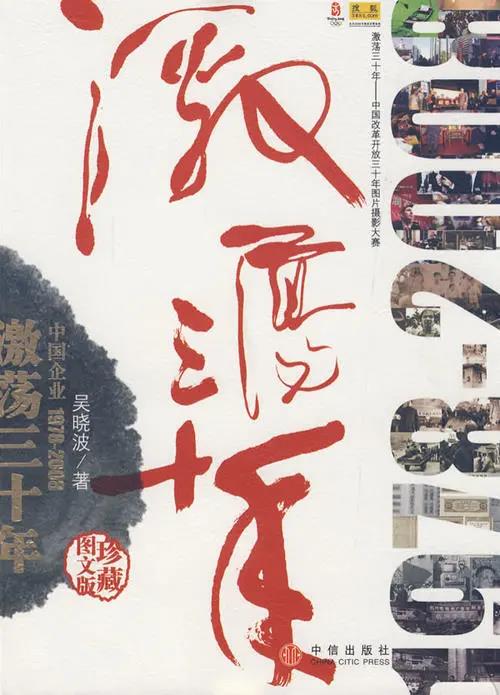 激荡三十年
Beijing 2008
搜狐
激荡三十年——中国改革开放三十年图片摄影大赛
1978-2008
中国企业 1978-2008
激荡三十年
吴晓波/著
珍藏
图文版
中信出版社
CHINA CITIC PRESS